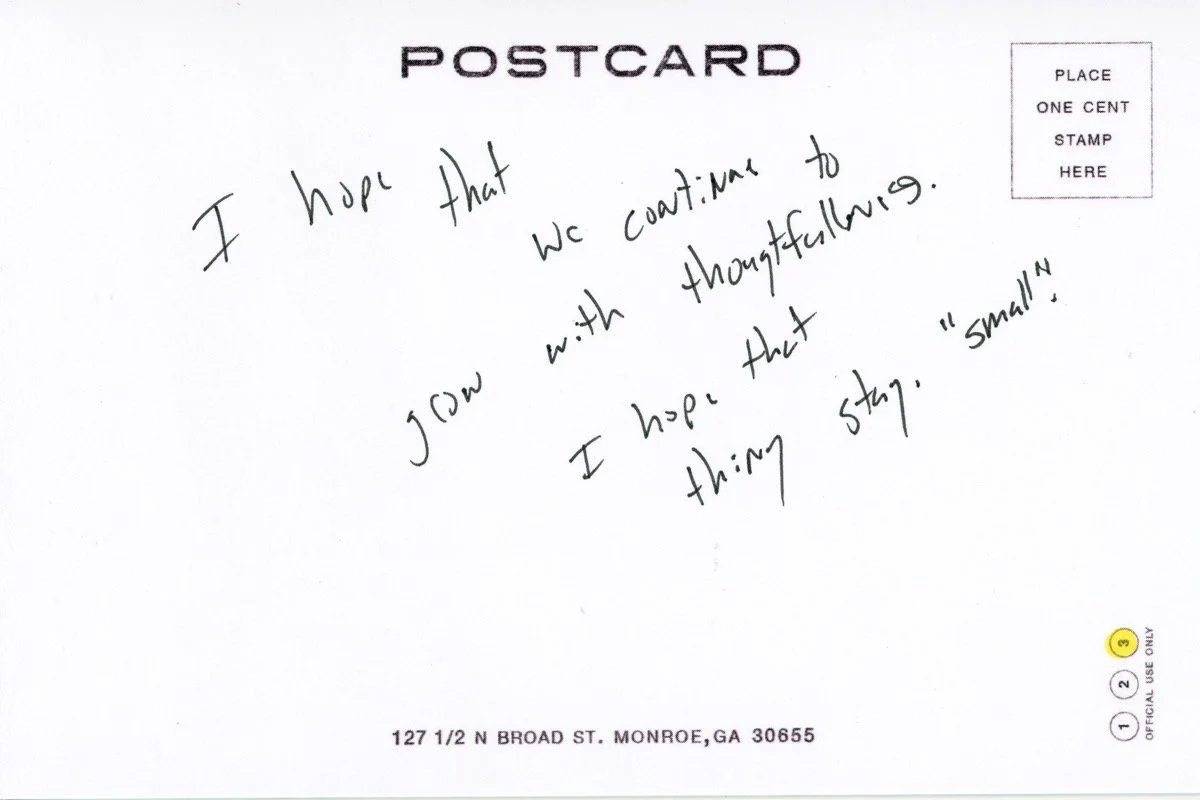 POSTCARD
PLACE
ONE CENT
STAMP
HERE
I hope that
we continue to
grow with thougtfullness.
I hope that
thing stay. "small".
3
2
1
OFFICIAL USE ONLY
127 1/2 N BROAD ST. MONROE, GA 30655